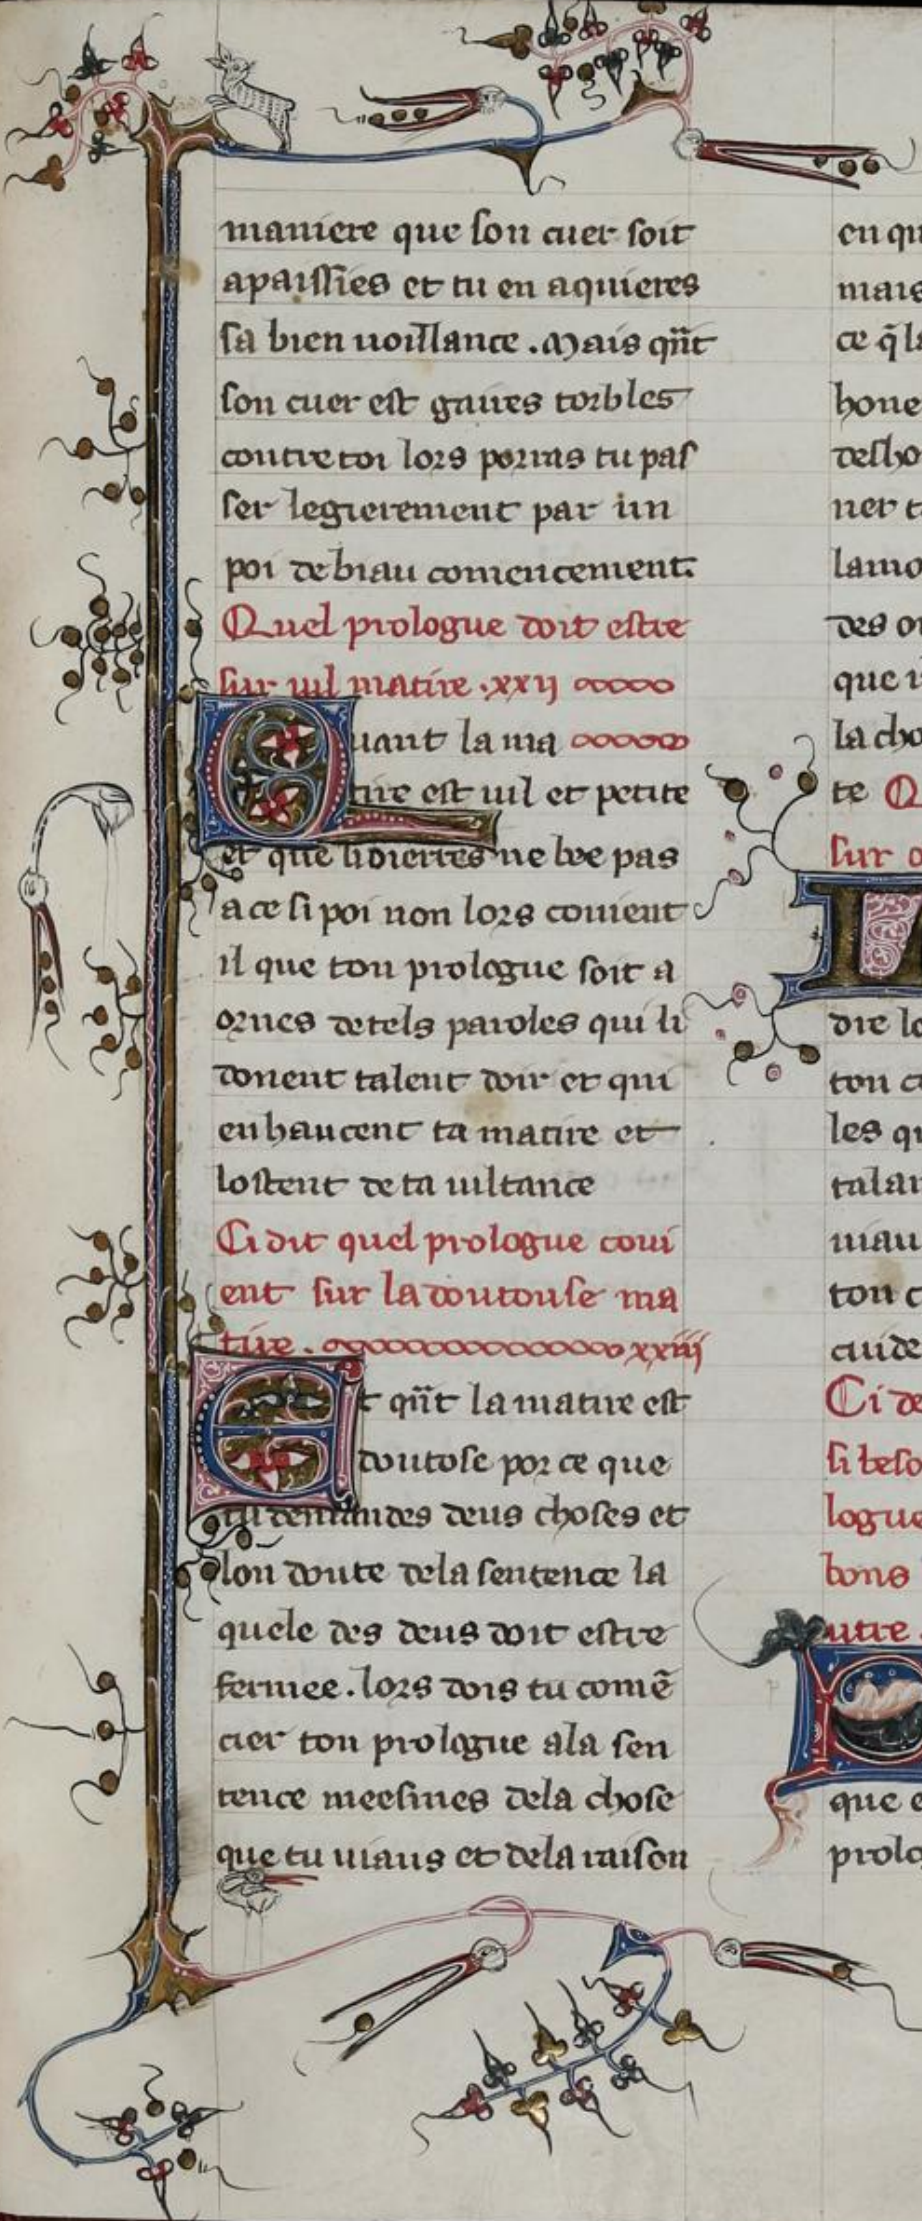 maniere que son cuer soit
apaissies et tu en aquieres
sa bien uoillance . Mais qñt
son cuer est griues torbles
contre toi lors porras tu pas
ser legierement par un
poi de biau comencement.
Quel prologue doit estre
sur uil matire .xxij
Quant la ma
tire est uil et petite
et que li oierres ne bee pas
a ce si poi non lors couient
il que ton prologue soit a
ornes de tels paroles qui li
donent talent doir et qui
enhaucent ta matire et
lostent de ta uiltance
Ci dit quel prologue coui
ent sur la doutouse ma
tire . xxiij
Et qñt la matire est
doutose por ce que
tu demandes deus choses et
lon doute dela sentence la
quele des deus doit estre
fermee . lors dois tu comē
cier ton prologue ala sen
tence meesmes dela chose
que tu uiaus et dela raison
en qu
mais
ce q̄ la
hone
desho
ner t
lamo
des o
que i
la cho
te Q
sur o
dre le
ton c
les qu
talan
uiau
ton c
cuide
Ci de
si beso
logue
bons
utre .
que e
prolo